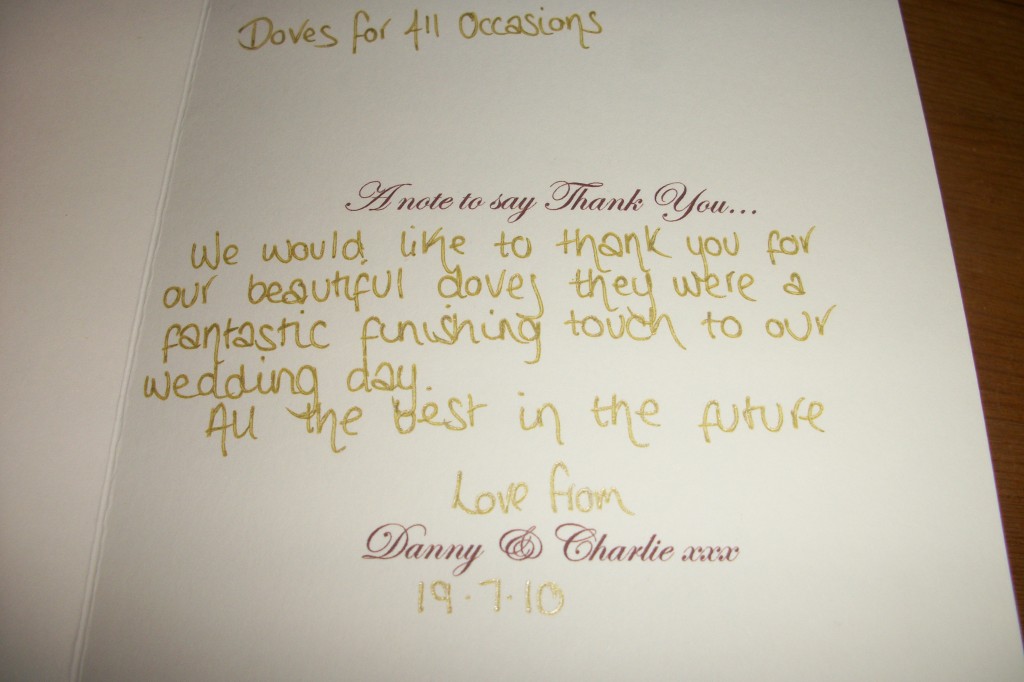 Doves for All Occasions
A note to say Thank You...
We would like to thank you for
our beautiful doves they were a
fantastic funishing touch to our
wedding day.
All the best in the future
Love from
Danny & Charlie xxx
19.7.10